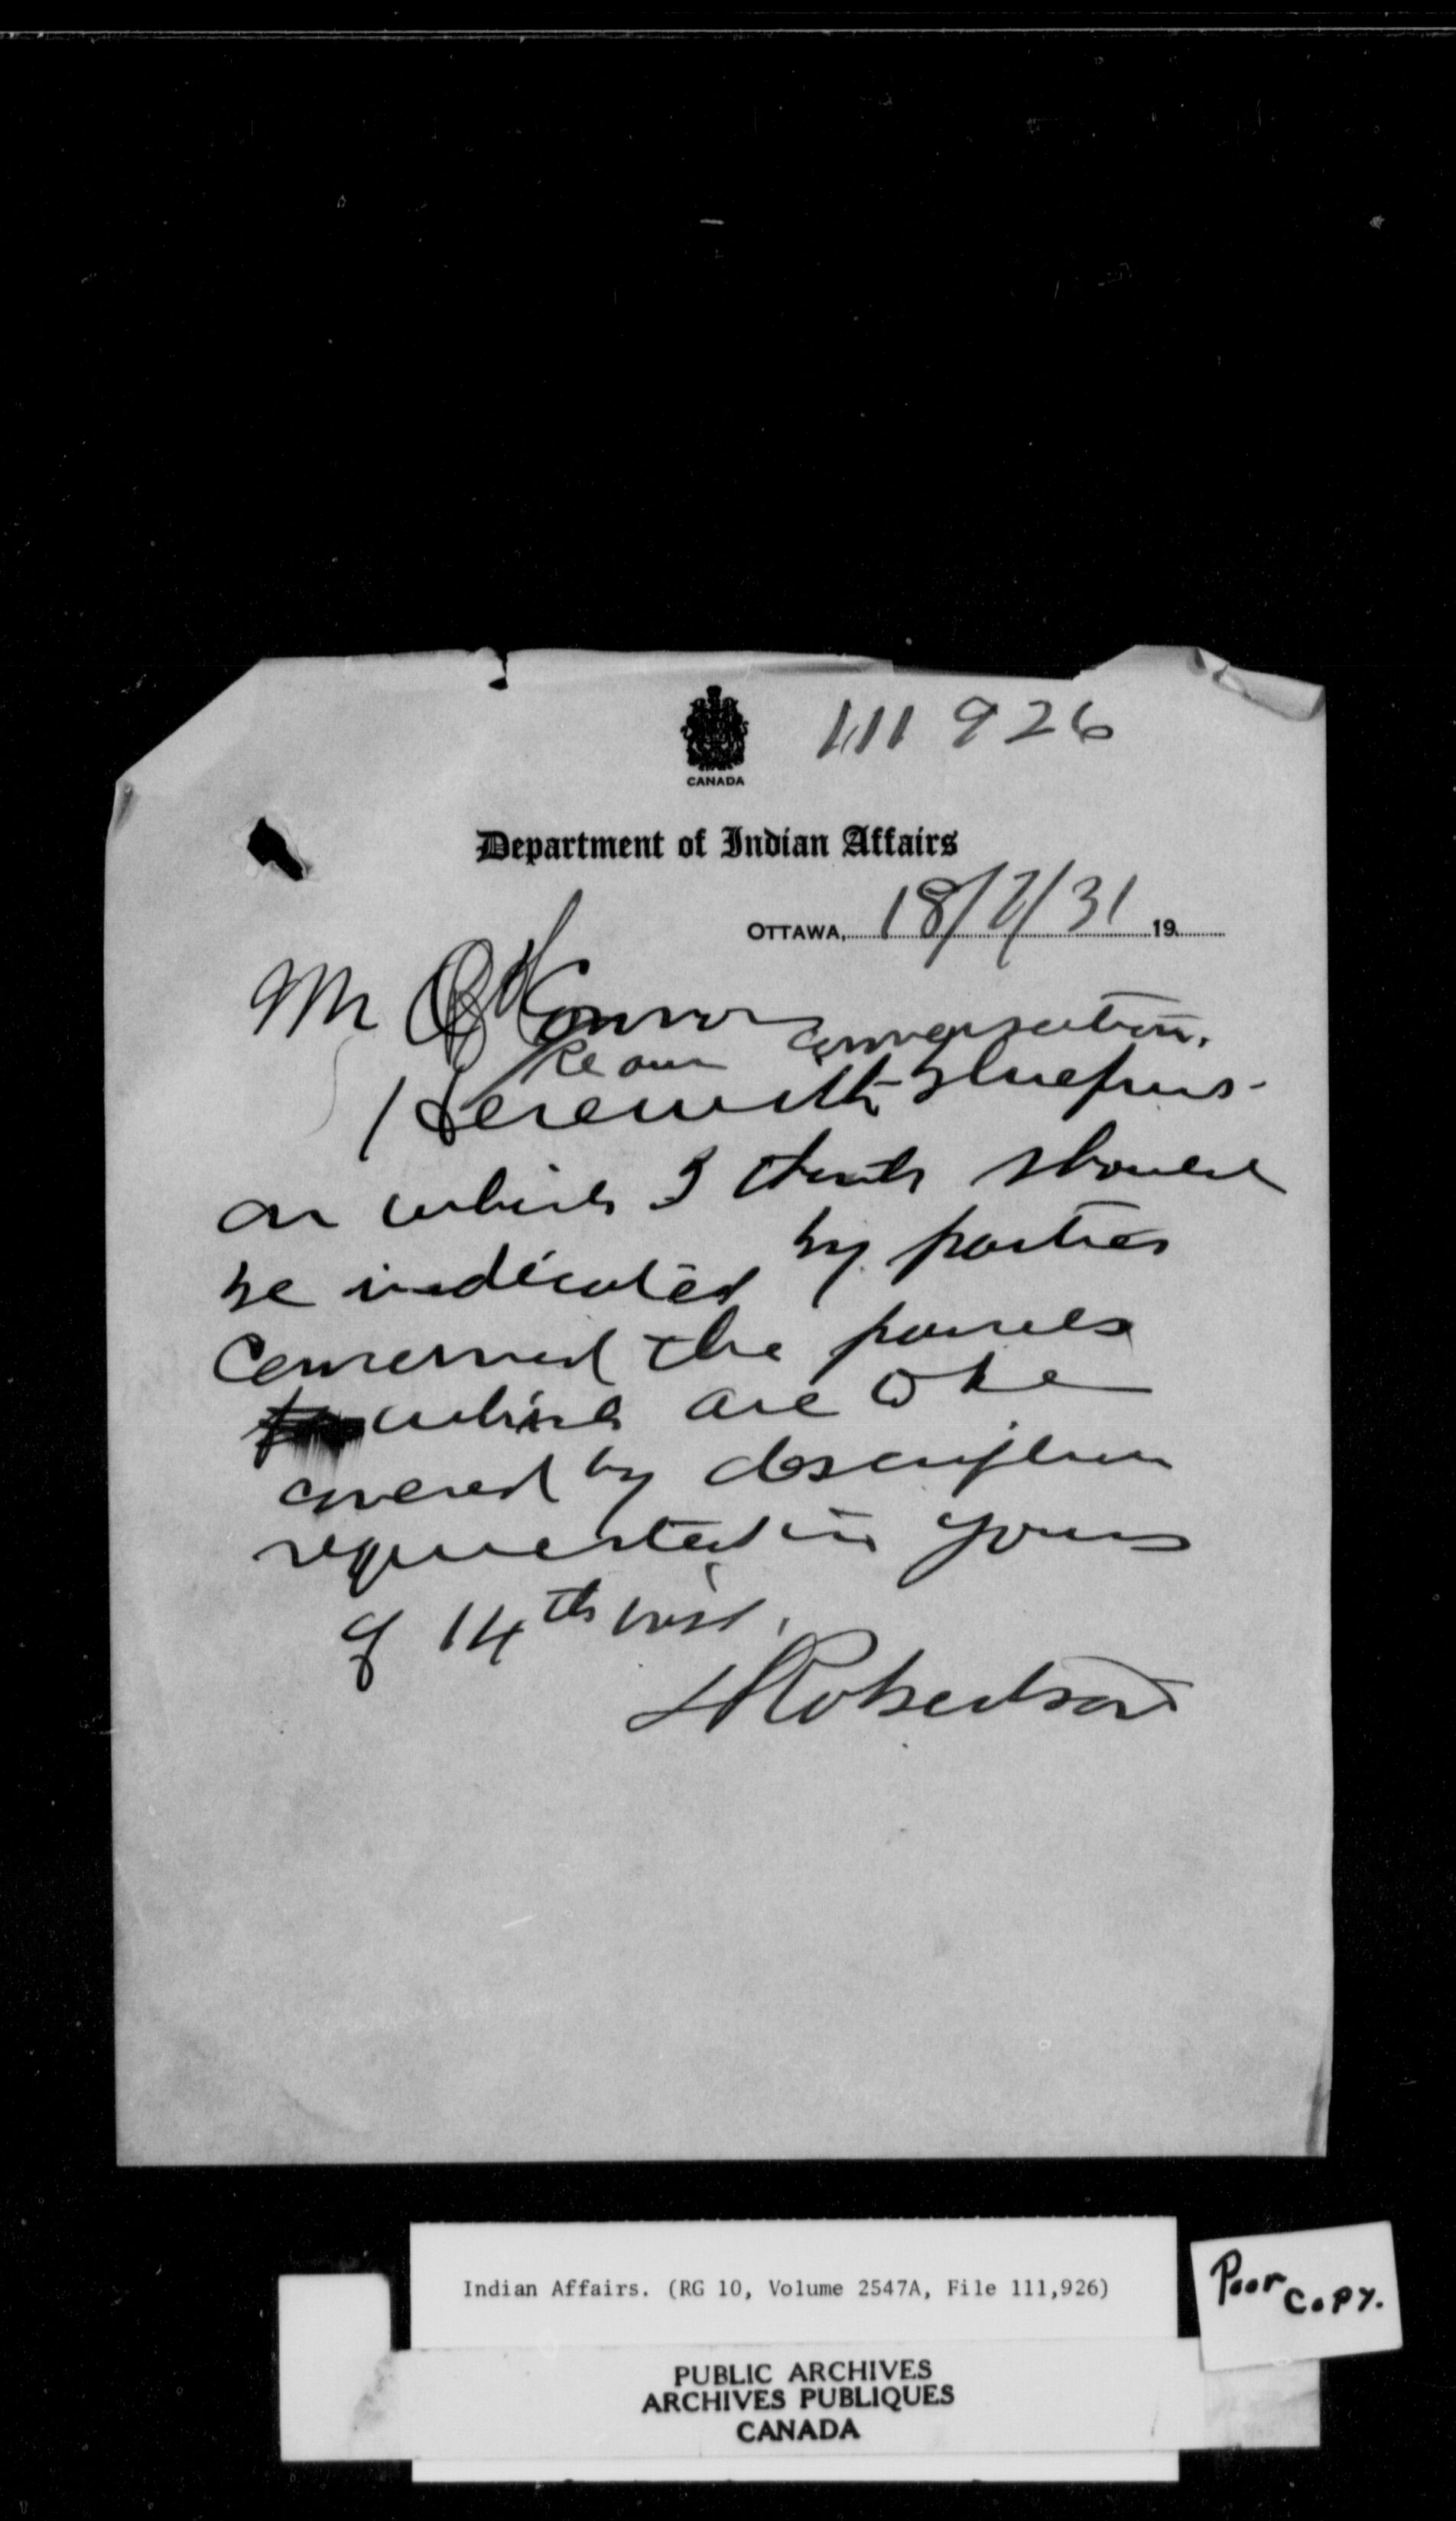 111 926
CANADA
Department of Indian Affairs
OTTAWA, 18/7/31 19
Mr O'Connor
Re our conversation.
Herewith blueprint
on which I think should
be indicated by parties
concerned the parcels
which are to be
covered by description
requested in yours
of 14th inst.
Robertson
Indian Affairs. (RG 10, Volume 2547A, File 111,926)
Poor Copy.
PUBLIC ARCHIVES
ARCHIVES PUBLIQUES
CANADA